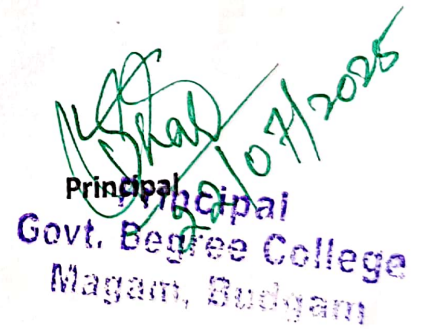 22/07/2025
Principal
Principal
Govt. Degree College
Magam, Budgam